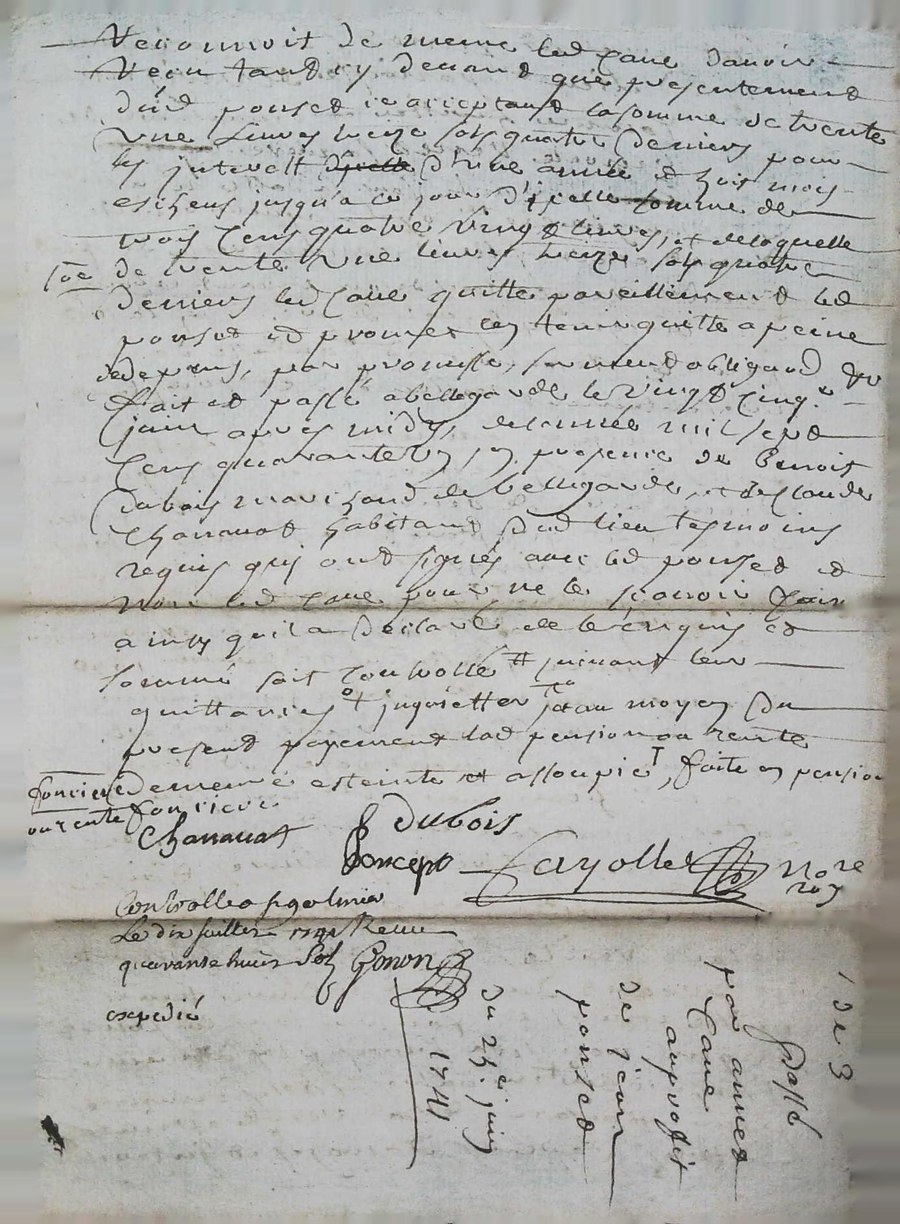 reconnoit de meme led Cave davoir
receu tandis devant que presentement
dud ponset ce acceptant la somme de trente
une Livres treze sols quatre deniers pour
les interest d'une année et trois mois
escheus jusqu'a ce jour d'icelle somme de
trois Cens quatre vingt livres, et de laquelle
so.e de trente une livres treize sols quatre
deniers led Cave quitte pareillement led
ponset et promet len tenir quitte a peine
de depens, par promesse, serment obligaon &c
fait et passé a bellegarde le vingt Cinq.e
juin apres midy, de lannée mil sept
Cens quarante un, en presence de Benoist
dubois marchand de bellegarde, et de Claude
Chanavat habitant dud lieu tesmoins
requis qui ont signés avec led ponset et
non led Cave pour ne le scavoir faire
ainsy quil a declaré de ce enquis et
sommé soit Controllé # suivant leur
quittances et # jtem au moyen du
present payement lad pension ou rente
demeure esteinte et assoupie, faite en pension
fonciere
ou rente fonciere
Chanavat Dubois
poncept Cayollet No.re roy
Controllé a st galmier
Le dix juillet 1741 Receu
quarante huit Sols Gonon
expedié
1 de 3
par
Cave
au proffit
de jean
ponset
du 25.e juin
1741